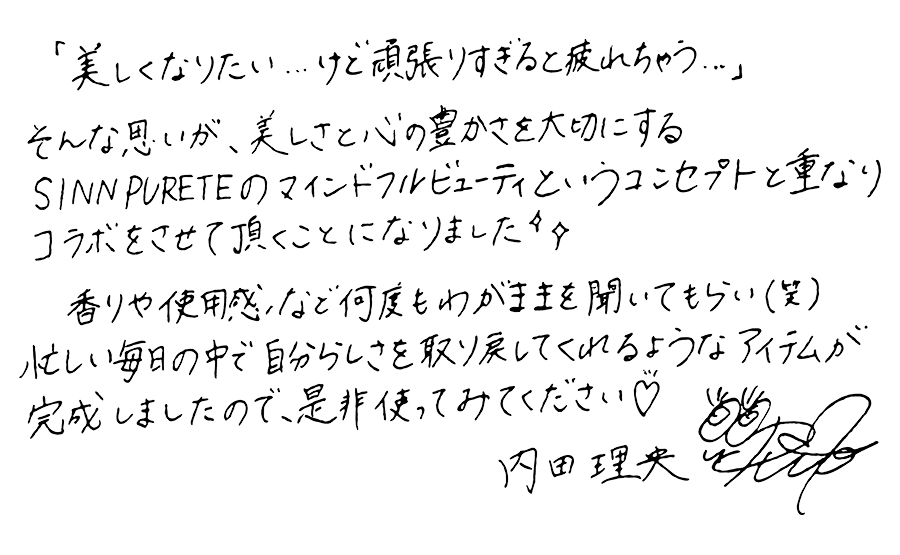 「美しくなりたい…けど頑張りすぎると疲れちゃう…」
そんな思いが、美しさと心の豊かさを大切にする
SINN PURETEのマインドフルビューティというコンセプトと重なり
コラボをさせて頂くことになりました✧✧
香りや使用感など何度もわがままを聞いてもらい(笑)
忙しい毎日の中で自分らしさを取り戻してくれるようなアイテムが
完成しましたので、是非使ってみてください♡
内田理央